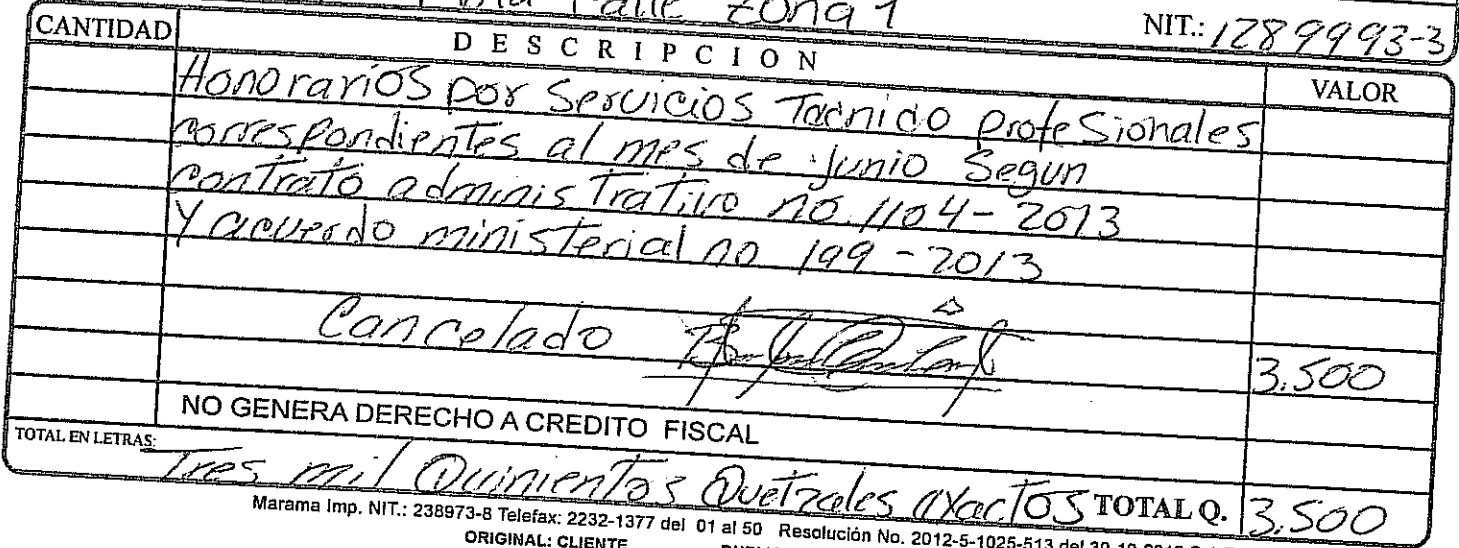 Calle Zona 1
NIT.: 1289993-3
CANTIDAD DESCRIPCION VALOR
Honorarios por Servicios Tacnido profesionales
correspondientes al mes de junio Segun
contrato administrativo no. 1104-2013
Y acuerdo ministerial no 199-2013
Cancelado 3.500
NO GENERA DERECHO A CREDITO FISCAL
TOTAL EN LETRAS: Tres mil Quinientos Quetzales exactos TOTAL Q. 3.500
Marama Imp. NIT.: 238973-8 Telefax: 2232-1377 del 01 al 50 Resolución No. 2012-5-1025-513 del
ORIGINAL: CLIENTE